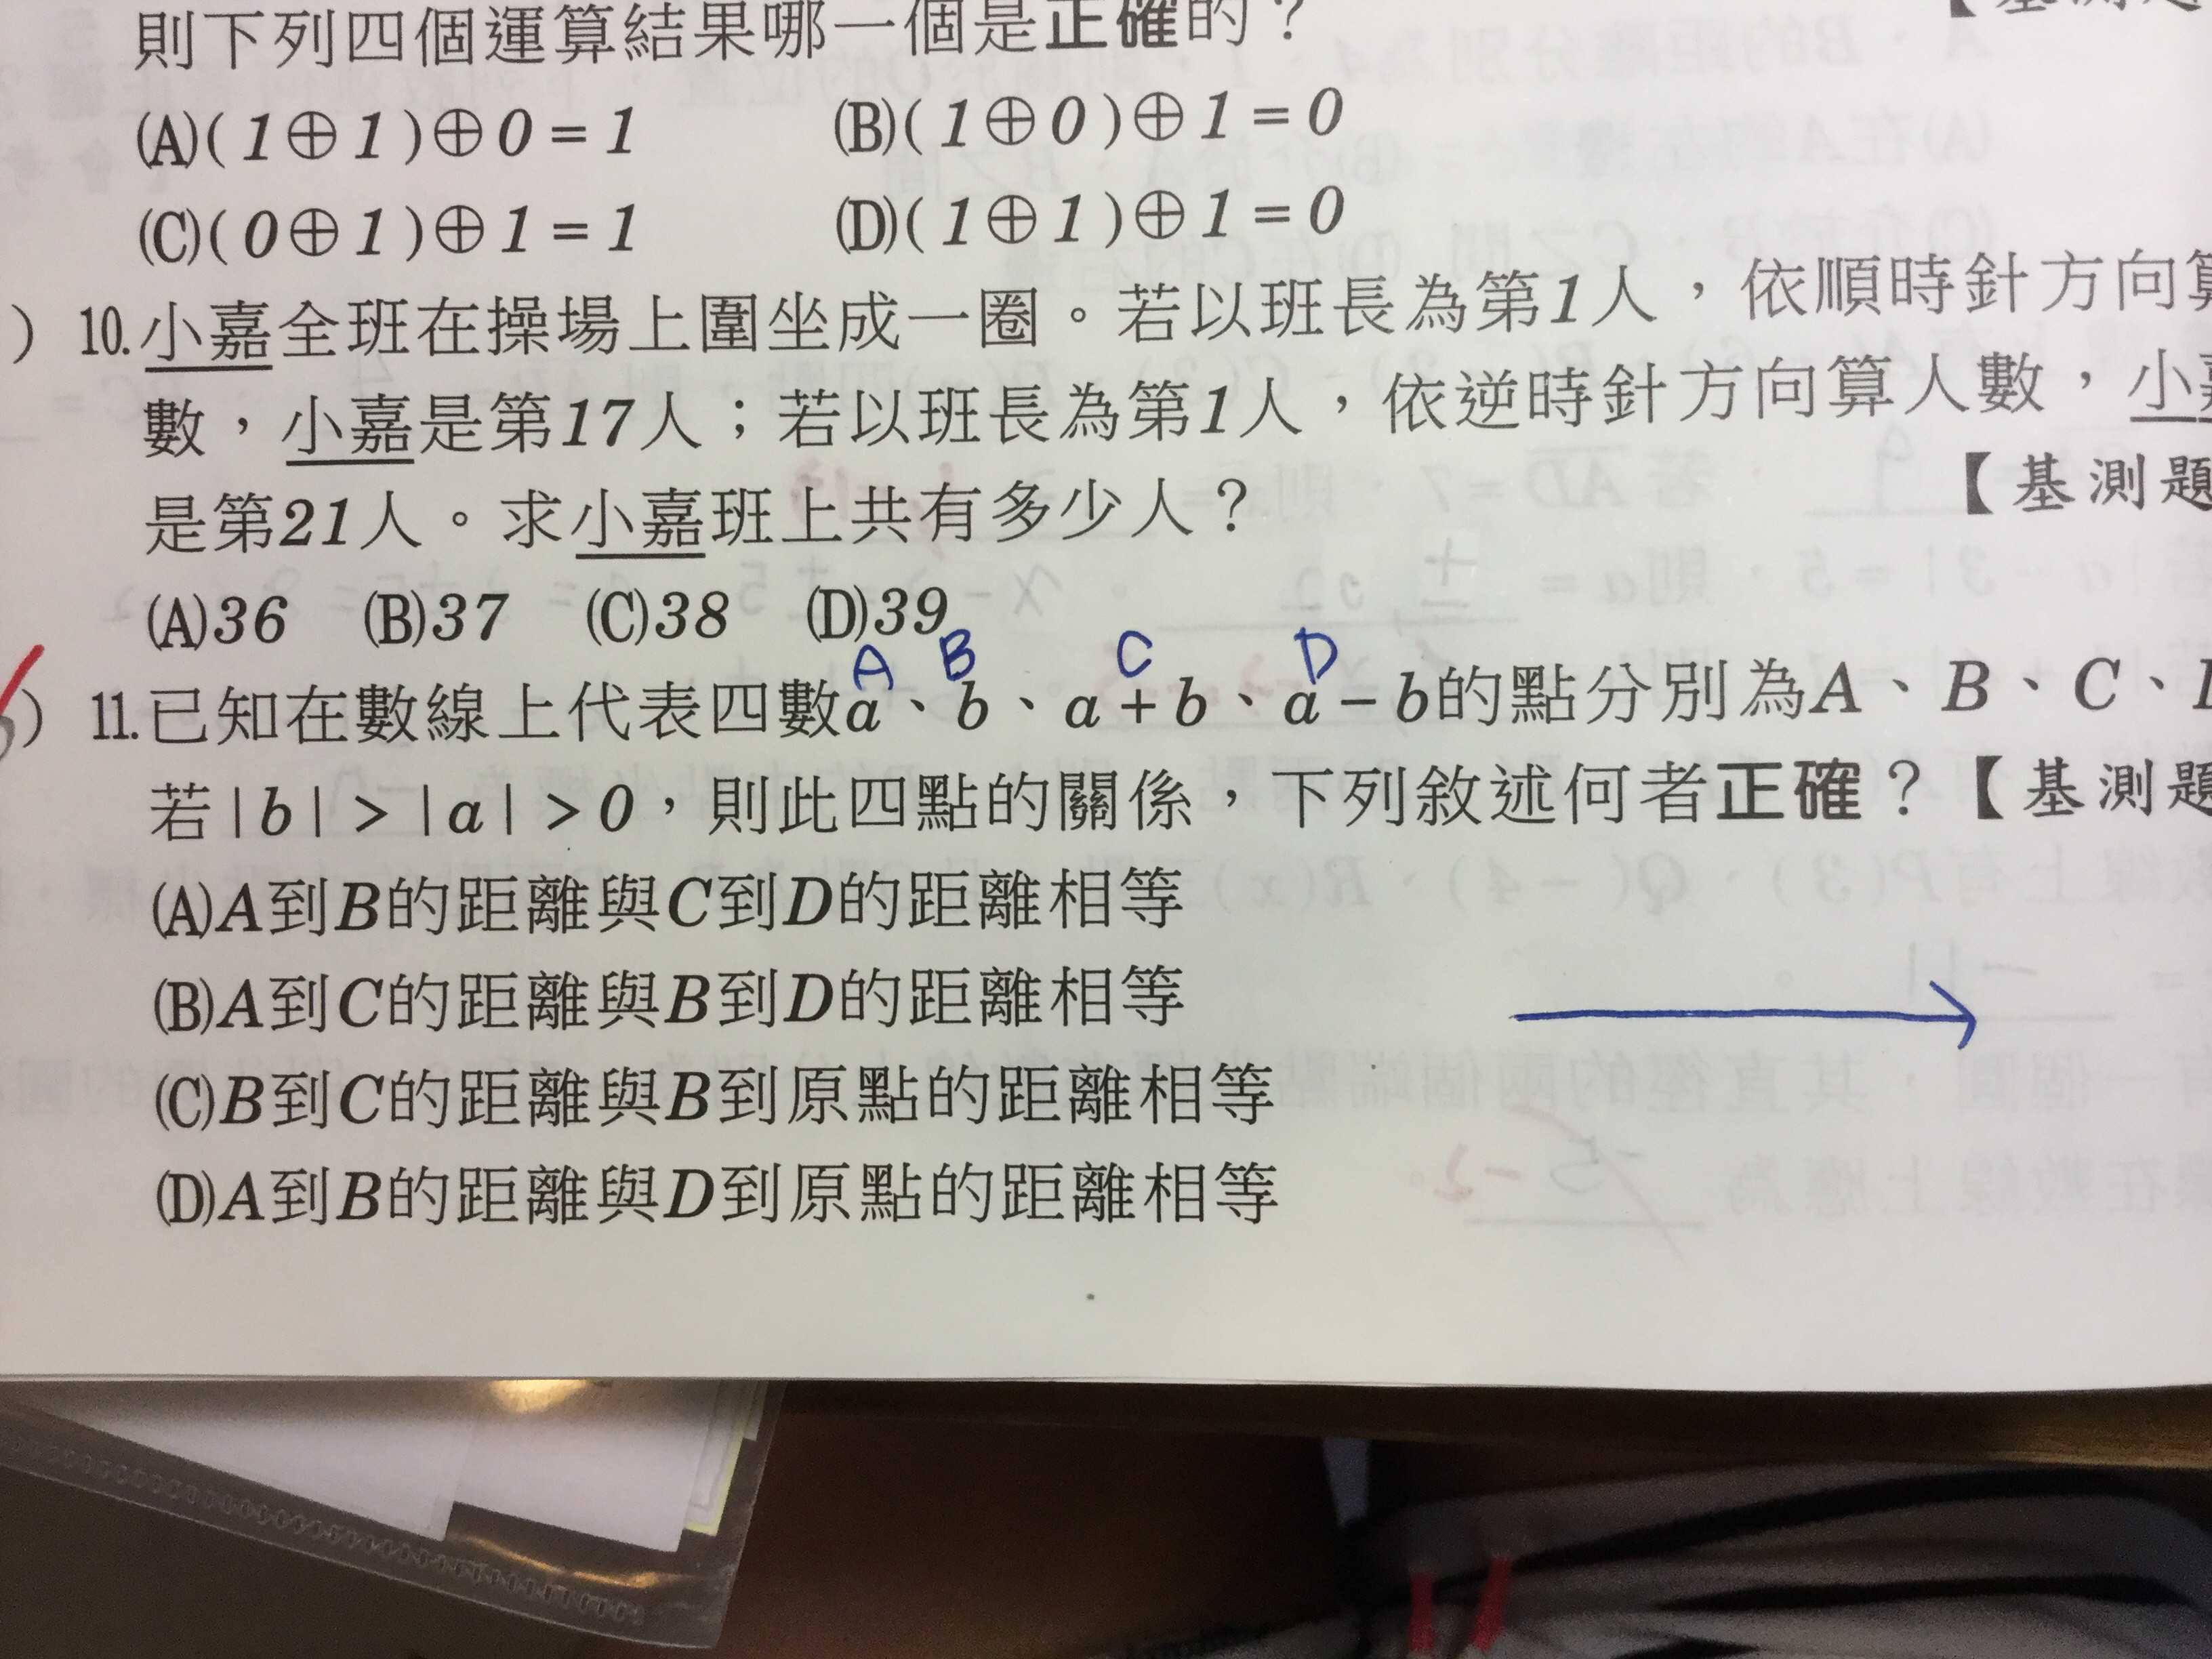 則下列四個運算結果哪一個是正確的？
【基測題
(A)(1⊕1)⊕0=1 (B)(1⊕0)⊕1=0
(C)(0⊕1)⊕1=1 (D)(1⊕1)⊕1=0
) 10.小嘉全班在操場上圍坐成一圈。若以班長為第1人，依順時針方向算
數，小嘉是第17人；若以班長為第1人，依逆時針方向算人數，小嘉
是第21人。求小嘉班上共有多少人？ 【基測題
(A)36 (B)37 (C)38 (D)39
A B C D
) 11.已知在數線上代表四數a、b、a+b、a-b的點分別為A、B、C、
若|b|>|a|>0，則此四點的關係，下列敘述何者正確？【基測題
(A)A到B的距離與C到D的距離相等
(B)A到C的距離與B到D的距離相等
(C)B到C的距離與B到原點的距離相等
(D)A到B的距離與D到原點的距離相等